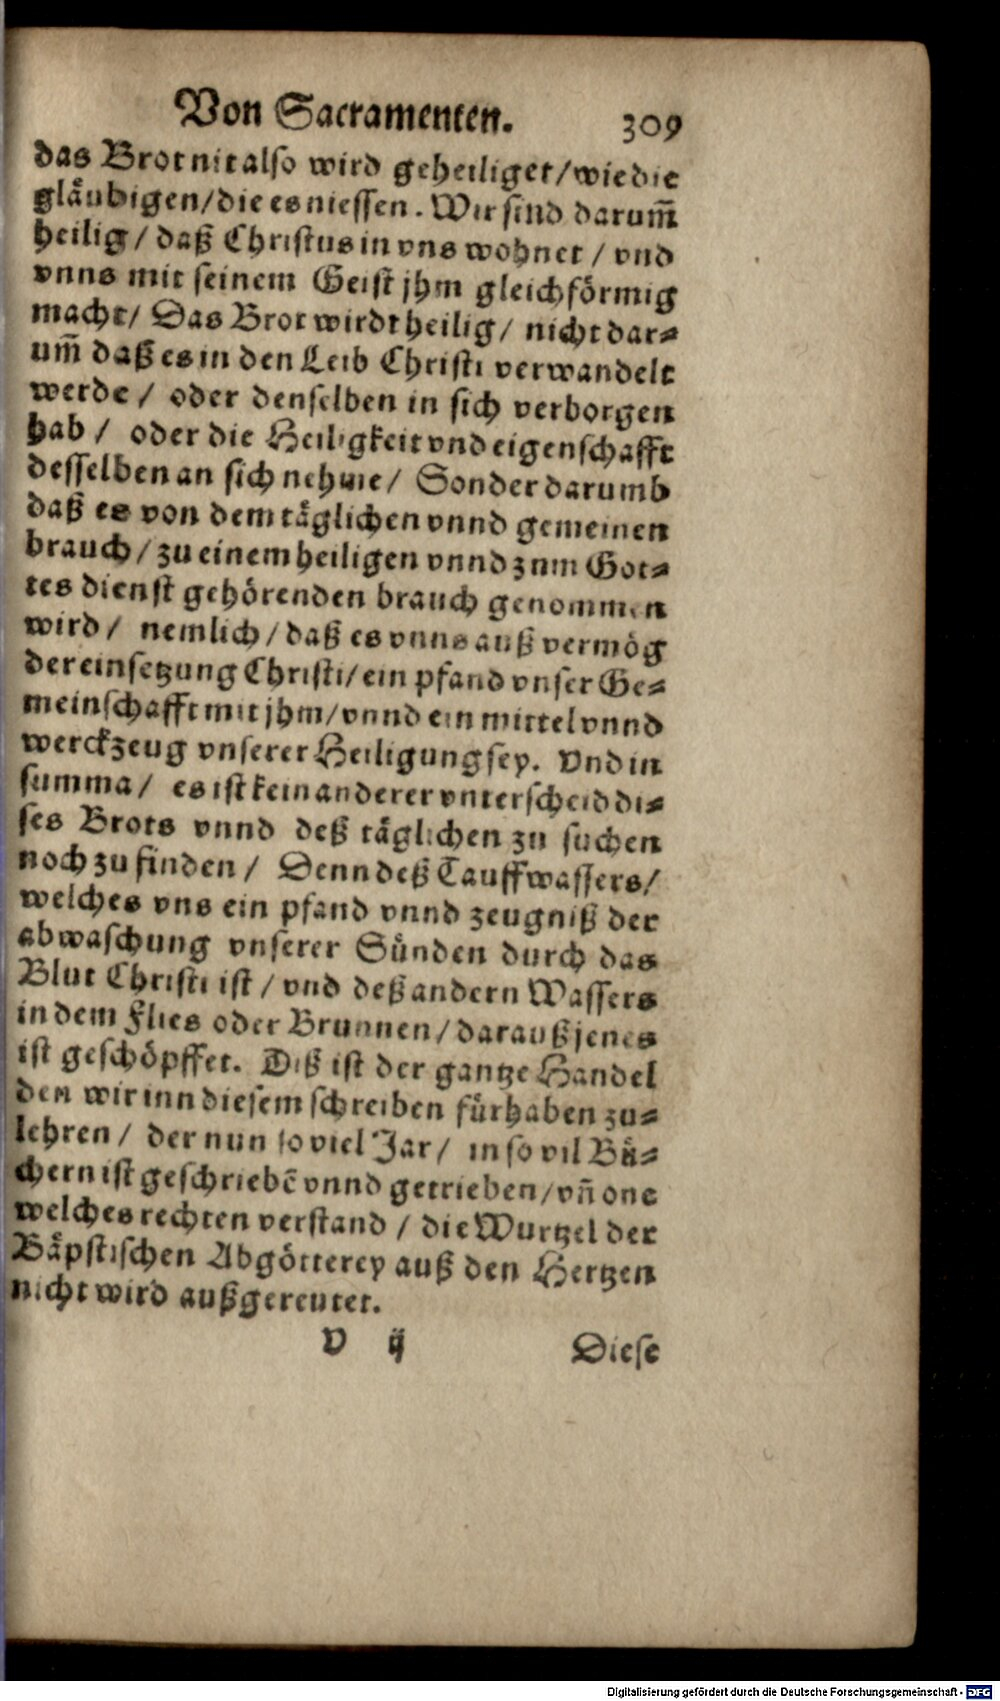 Von Sacramenten. 309
das Brot nit also wird geheiliget/ wie die
gläubigen/ die es niessen. Wir sind darum̃
heilig/ daß Christus in vns wohnet/ vnd
vnns mit seinem Geist jhm gleichförmig
macht/ Das Brot wirdt heilig/ nicht dar-
um̃ daß es in den Leib Christi verwandelt
werde/ oder denselben in sich verborgen
hab/ oder die Heiligkeit vnd eigenschafft
desselben an sich nehme/ Sonder darumb
daß es von dem täglichen vnnd gemeinen
brauch/ zu einem heiligen vnnd zum Got-
tes dienst gehörenden brauch genommen
wird/ nemlich/ daß es vnns auß vermög
der einsetzung Christi/ ein pfand vnser Ge-
meinschafft mit jhm/ vnnd ein mittel vnnd
werckzeug vnserer Heiligung sey. Vnd in
summa/ es ist kein anderer vnterscheid di-
ses Brots vnnd deß täglichen zu suchen
noch zu finden/ Denn deß Tauffwassers/
welches vns ein pfand vnnd zeugniß der
abwaschung vnserer Sünden durch das
Blut Christi ist/ vnd deß andern Wassers
in dem Flies oder Brunnen/ darauß jenes
ist geschöpffet. Diß ist der gantze Handel
den wir inn diesem schreiben fürhaben zu-
lehren/ der nun so viel Jar/ in so vil Bü-
chern ist geschriebē vnnd getrieben/ vñ one
welches rechten verstand/ die Wurtzel der
Bäpstischen Abgötterey auß den Hertzen
nicht wird außgereutet.
V ij Diese
Digitalisierung gefördert durch die Deutsche Forschungsgemeinschaft - DFG